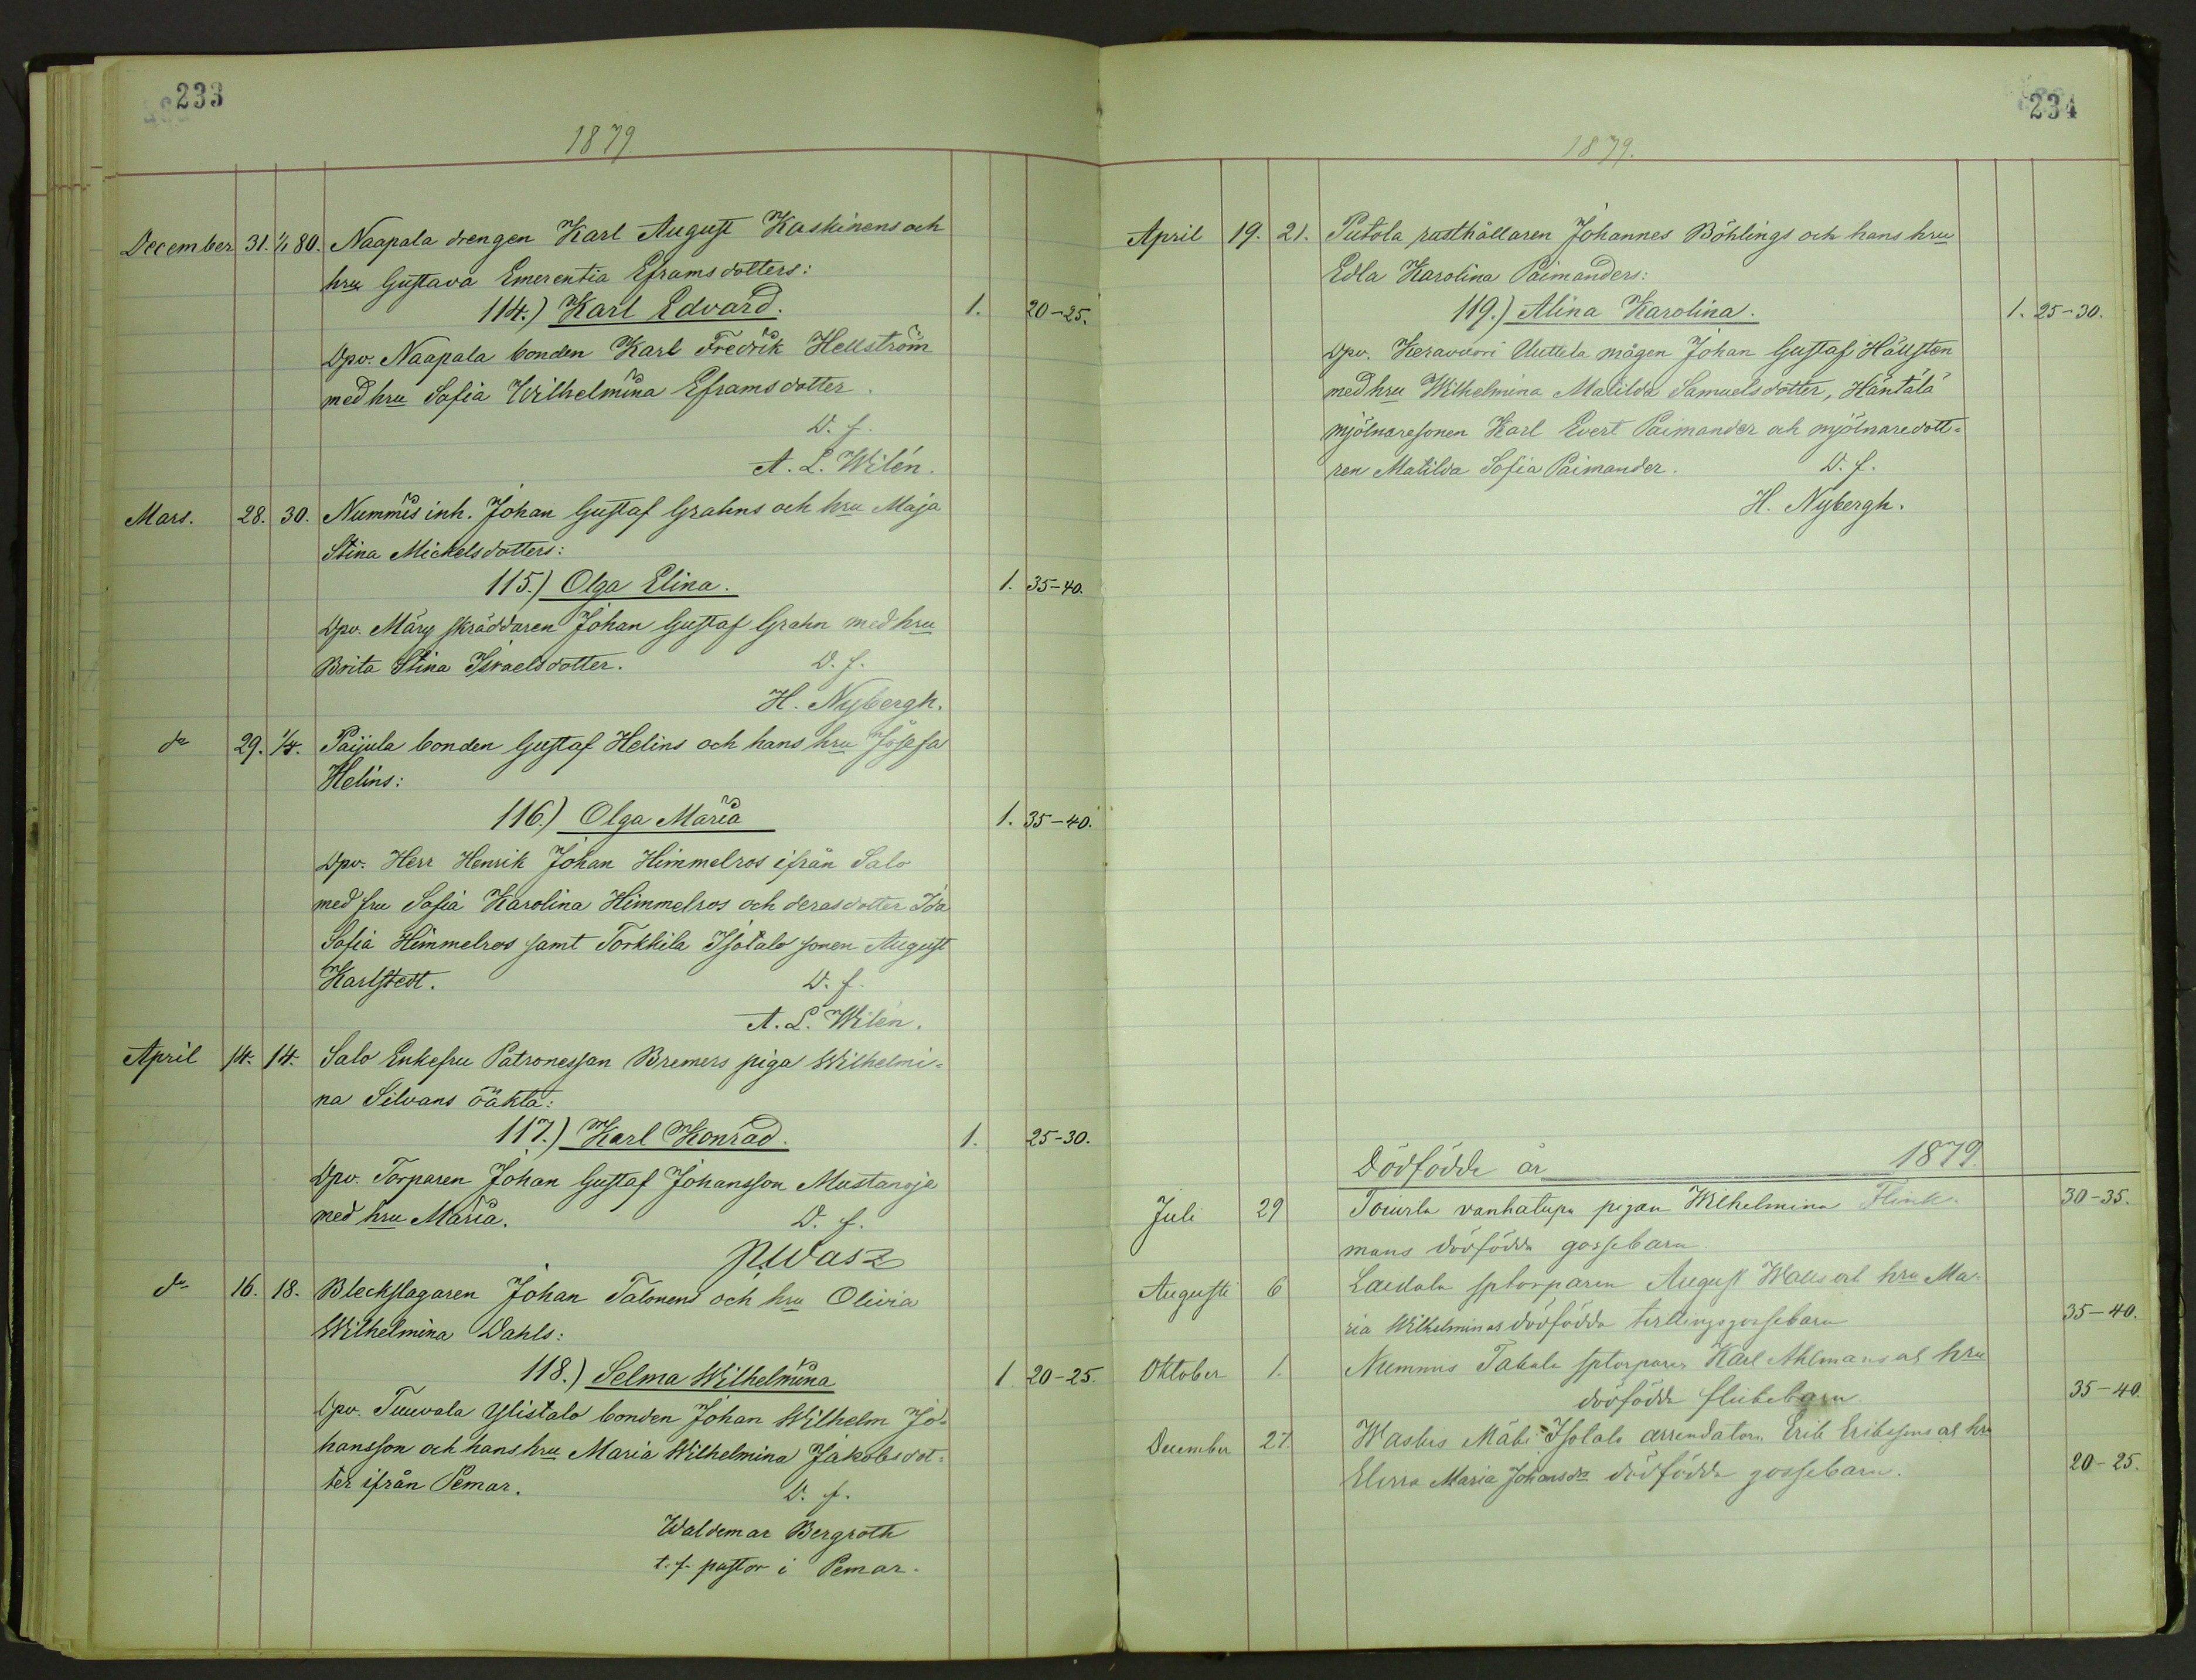 233
1879
December 31. 1/1 80. Naapala drengen Karl August Kaskinens och
hru Gustava Emerentia Eframsdotters:
114.) Karl Edvard. 1. 20-25.
Dpv. Naapala bonden Karl Fredrik Hellström
med hru Sofia Wilhelmina Eframsdotter.
D. f.
A. L. Wilén.
Mars. 28. 30. Nummis inh. Johan Gustaf Grahns och hru Maja
Stina Mickelsdotters:
115.) Olga Elina. 1. 35-40.
Dpv. Märy skräddaren Johan Gustaf Grahn med hru
Brita Stina Israelsdotter. D. f.
H. Nybergh.
do 29. 1/4. Paijula bonden Gustaf Helins och hans hru Josefa
Helins:
116.) Olga Maria 1. 35-40.
Dpv. Herr Henrik Johan Himmelros ifrån Salo
med fru Sofia Karolina Himmelros och deras dotter Ida
Sofia Himmelros samt Torkkila Isotalo sonen August
Karlstedt. D. f.
A. L. Wilén.
April 14. 14. Salo Enkefru Patronessan Bremers piga Wilhelmi=
na Silvans oäkta:
117.) Karl Konrad. 1. 25-30.
Dpv. Torparen Johan Gustaf Johansson Mustanoja
med hru Maria. D. f.
P. Wasz
do 16. 18. Bleckslagaren Johan Talonens och hru Olivia
Wilhelmina Dahls:
118.) Selma Wilhelmina 1 20-25.
Dpv. Tuuvala Ylistalo bonden Johan Wilhelm Jo=
hansson och hans hru Maria Wilhelmina Jakobsdot=
ter ifrån Pemar. D. f.
Waldemar Bergroth
t. f. pastor i Pemar.
234
1879.
April 19. 21. Putola rusthållaren Johannes Böhlings och hans hru
Edla Karolina Paimanders:
119.) Alina Karolina. 1. 25-30.
Dpv. Keravuori Uuttela mågen Johan Gustaf Hällsten
med hru Wilhelmina Matilda Samuelsdotter, Häntälä
mjölnaresonen Karl Evert Paimander och mjölnaredott=
ren Matilda Sofia Paimander. D. f.
H. Nybergh.
Dödfödde år 1879.
Juli 29 vanhatupa pigan Wilhelmina Flink- 30-35.
mans dödfödda gossebarn.
Augusti 6 Laidala sptorparen August Walls och hru Ma-
ria Wilhelminas dödfödda tvillingsgossebarn 35-40.
Oktober 1. Nummis Takala sptorparen Karl Ahlmans och hru
dödfödda flickebarn 35-40.
December 27. Waskis Mäki Isotalo arrendatorn Erik Erikssons och hru
Maria Johansdr dödfödda gossebarn. 20-25.